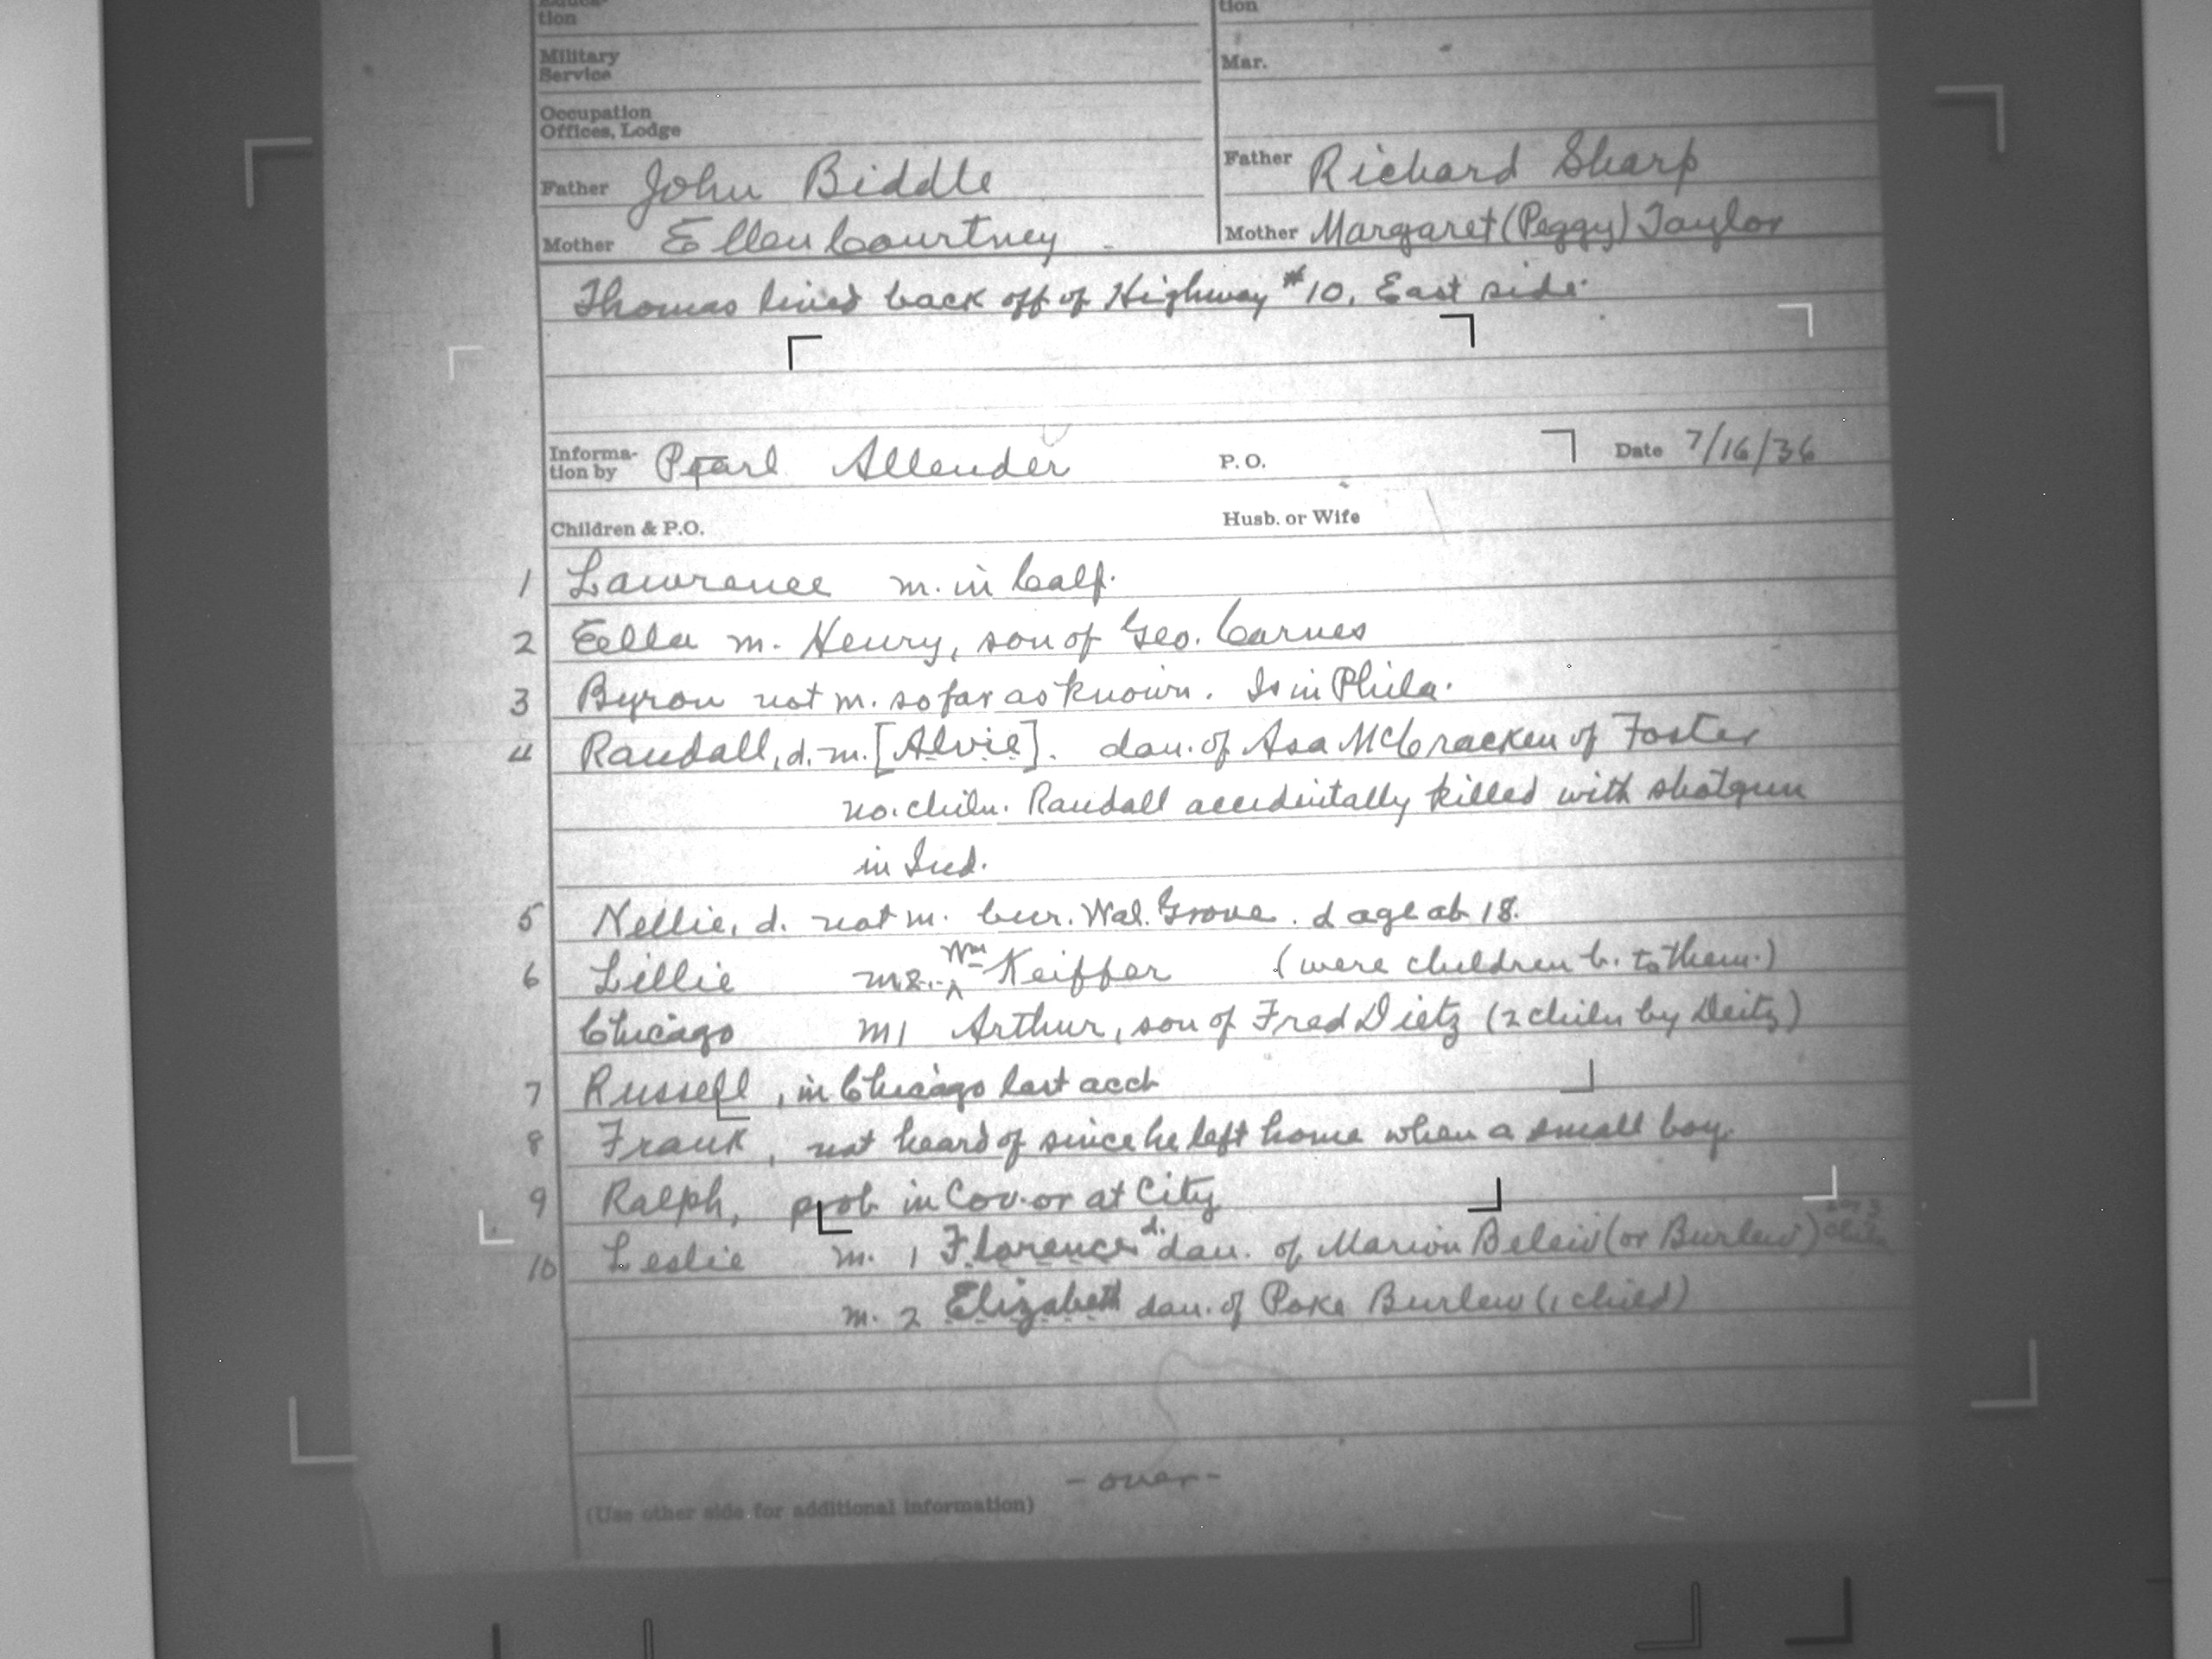 tion
tion
Military
Service
Mar.
Occupation
Offices, Lodge
Father John Biddle
Father Richard Sharp
Mother Ellen Courtney
Mother Margaret (Peggy) Taylor
Thomas lived back off of Highway #10, East side.
Informa-
tion by Pearl Allender P.O. Date 7/16/36
Children & P.O. Husb. or Wife
1 Lawrence m. in Calf.
2 Eella m. Henry, son of Geo. Carnes
3 Byron not m. so far as known. Is in Phila.
4 Randall, d. m. [Alvie]. dau. of Asa McCracken of Foster
no. chiln. Randall accidentally killed with shotgun
in Ind.
5 Nellie, d. not m. bur. Wal. Grove. d age ab 18.
6 Lillie m2. Wm Keiffer (were children b. to them.)
Chicago m1 Arthur, son of Fred Dietz (2 chiln by Deitz)
7 Russell, in Chicago last acct
8 Frank, not heard of since he left home when a small boy.
9 Ralph, prob in Cov. or at City
10 Leslie m. 1 Florence d. dau. of Marion Belew (or Burlew)
m. 2 Elizabeth dau. of Poke Burlew (1 child)
- over -
(Use other side for additional information)